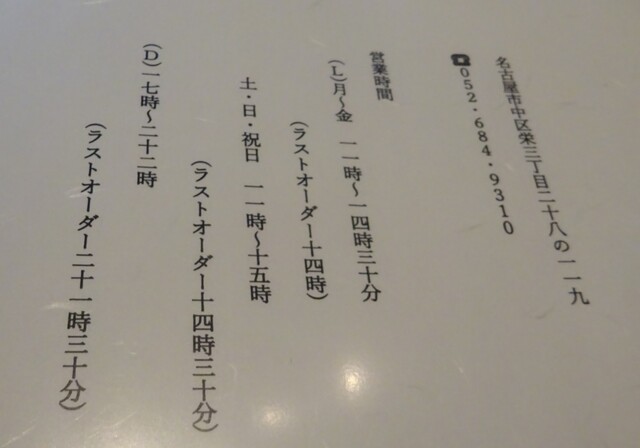 名古屋市中区栄三丁目二十八の一一九
☎052・684・9310
営業時間
(L)月〜金 一一時〜一四時三十分
(ラストオーダー十四時)
土・日・祝日 一一時〜十五時
(ラストオーダー十四時三十分)
(D)一七時〜二十二時
(ラストオーダー二十一時三十分)